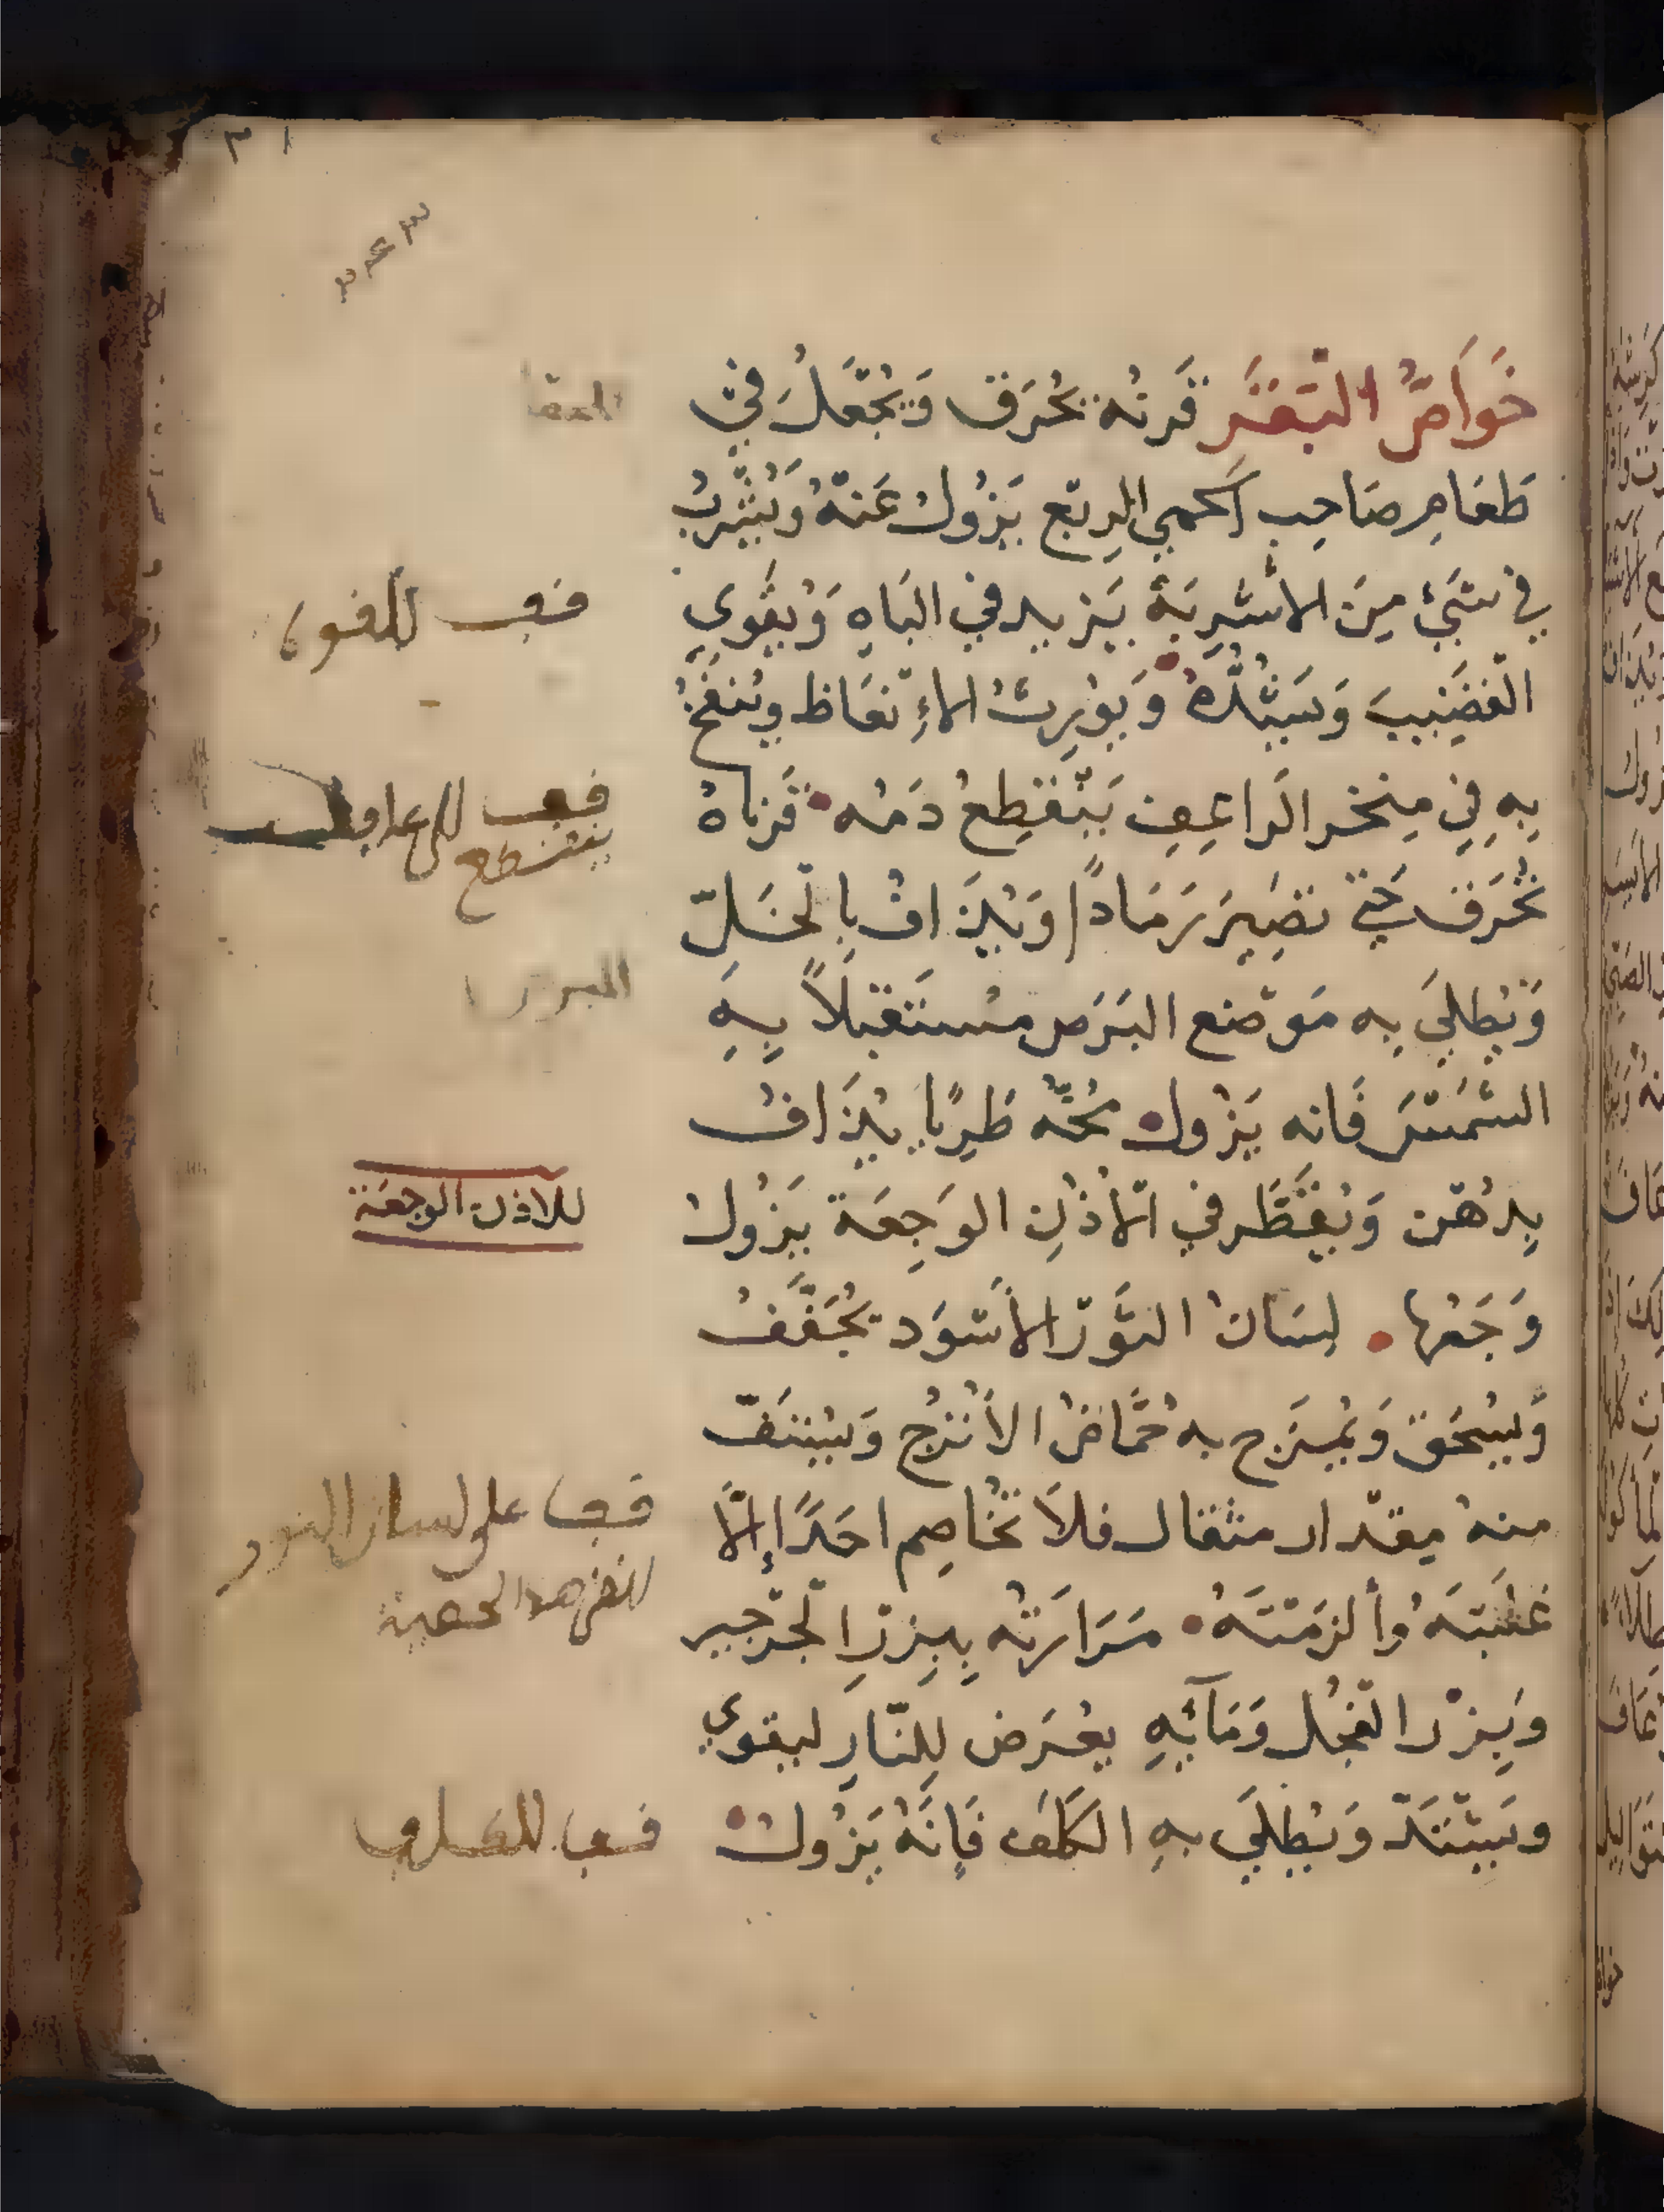 ٣١
٣٤٣
خَوَاصُّ البَقَرِ قَرنُه يُحْرَق وَيُجْعَلُ فِي
طَعَامِ صَاحِبِ الحمي الرِبْع يَزُولُ عَنْهُ وَيُشْرَبُ
في شَيْءٍ مِنَ الأَشْرِبَةِ يَزِيد في البَاهِ وَيُقَوي
القَضِيبَ وَيَشُدُّهُ وَيُورِثُ الإِنْعَاظ وينفَخُ
بِهِ فِي مِنخر الرَاعِفِ يَنْقَطِعُ دَمُه قَرناهُ
تُحْرَق حَتّي تَصِيرَ رَمَادًا وَيُذَافُ بِالْخَلِّ
وَيُطلَي بِه مَوْضع البَرَص مُستَقبلاً بِهِ
الشَّمْسَ فَانه يَزُول مُخُّه طَرِيًا يُذَافُ
بِدُهْن وَيُقَطَّر في الأُذُنِ الوَجِعَة يَزُولُ
وَجَعُها لِسَانُ الثَّوْر الأَسْوَد يُجَفَّفُ
وَيُسْحَق وَيُمزَج به حُمَّاضُ الأُتْرُج وَيُسْتَفّ
منهُ مِقْدار مثقال فلاَ تُخَاصِم احَدًا إلَّا
غَلَبْتَهُ وأَلزَمْتَهُ مَرَارَتُه بِبِزْرِ الْجَرْجير
وَبِزْر الفُجْل وَمَآئِهِ يعْرَض لِلنَّارِ ليقوي
ويَشْتَدّ وَيُطلَي بهِ الكَلَف فَإِنَّهُ يَزُولُ
قف للقوه
قف للرعاف
ينقطع
البرص
للاذن الوجعة
قف على لسان الثور
قف للكلف